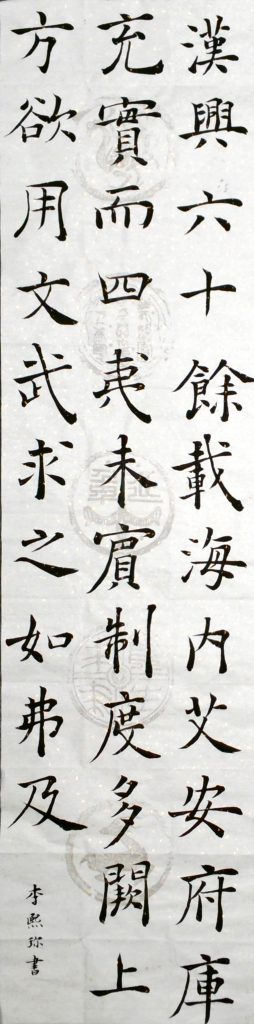 漢興六十餘載海内艾安府庫
充實而四夷未賓制度多闕上
方欲用文武求之如弗及
李熙珎書